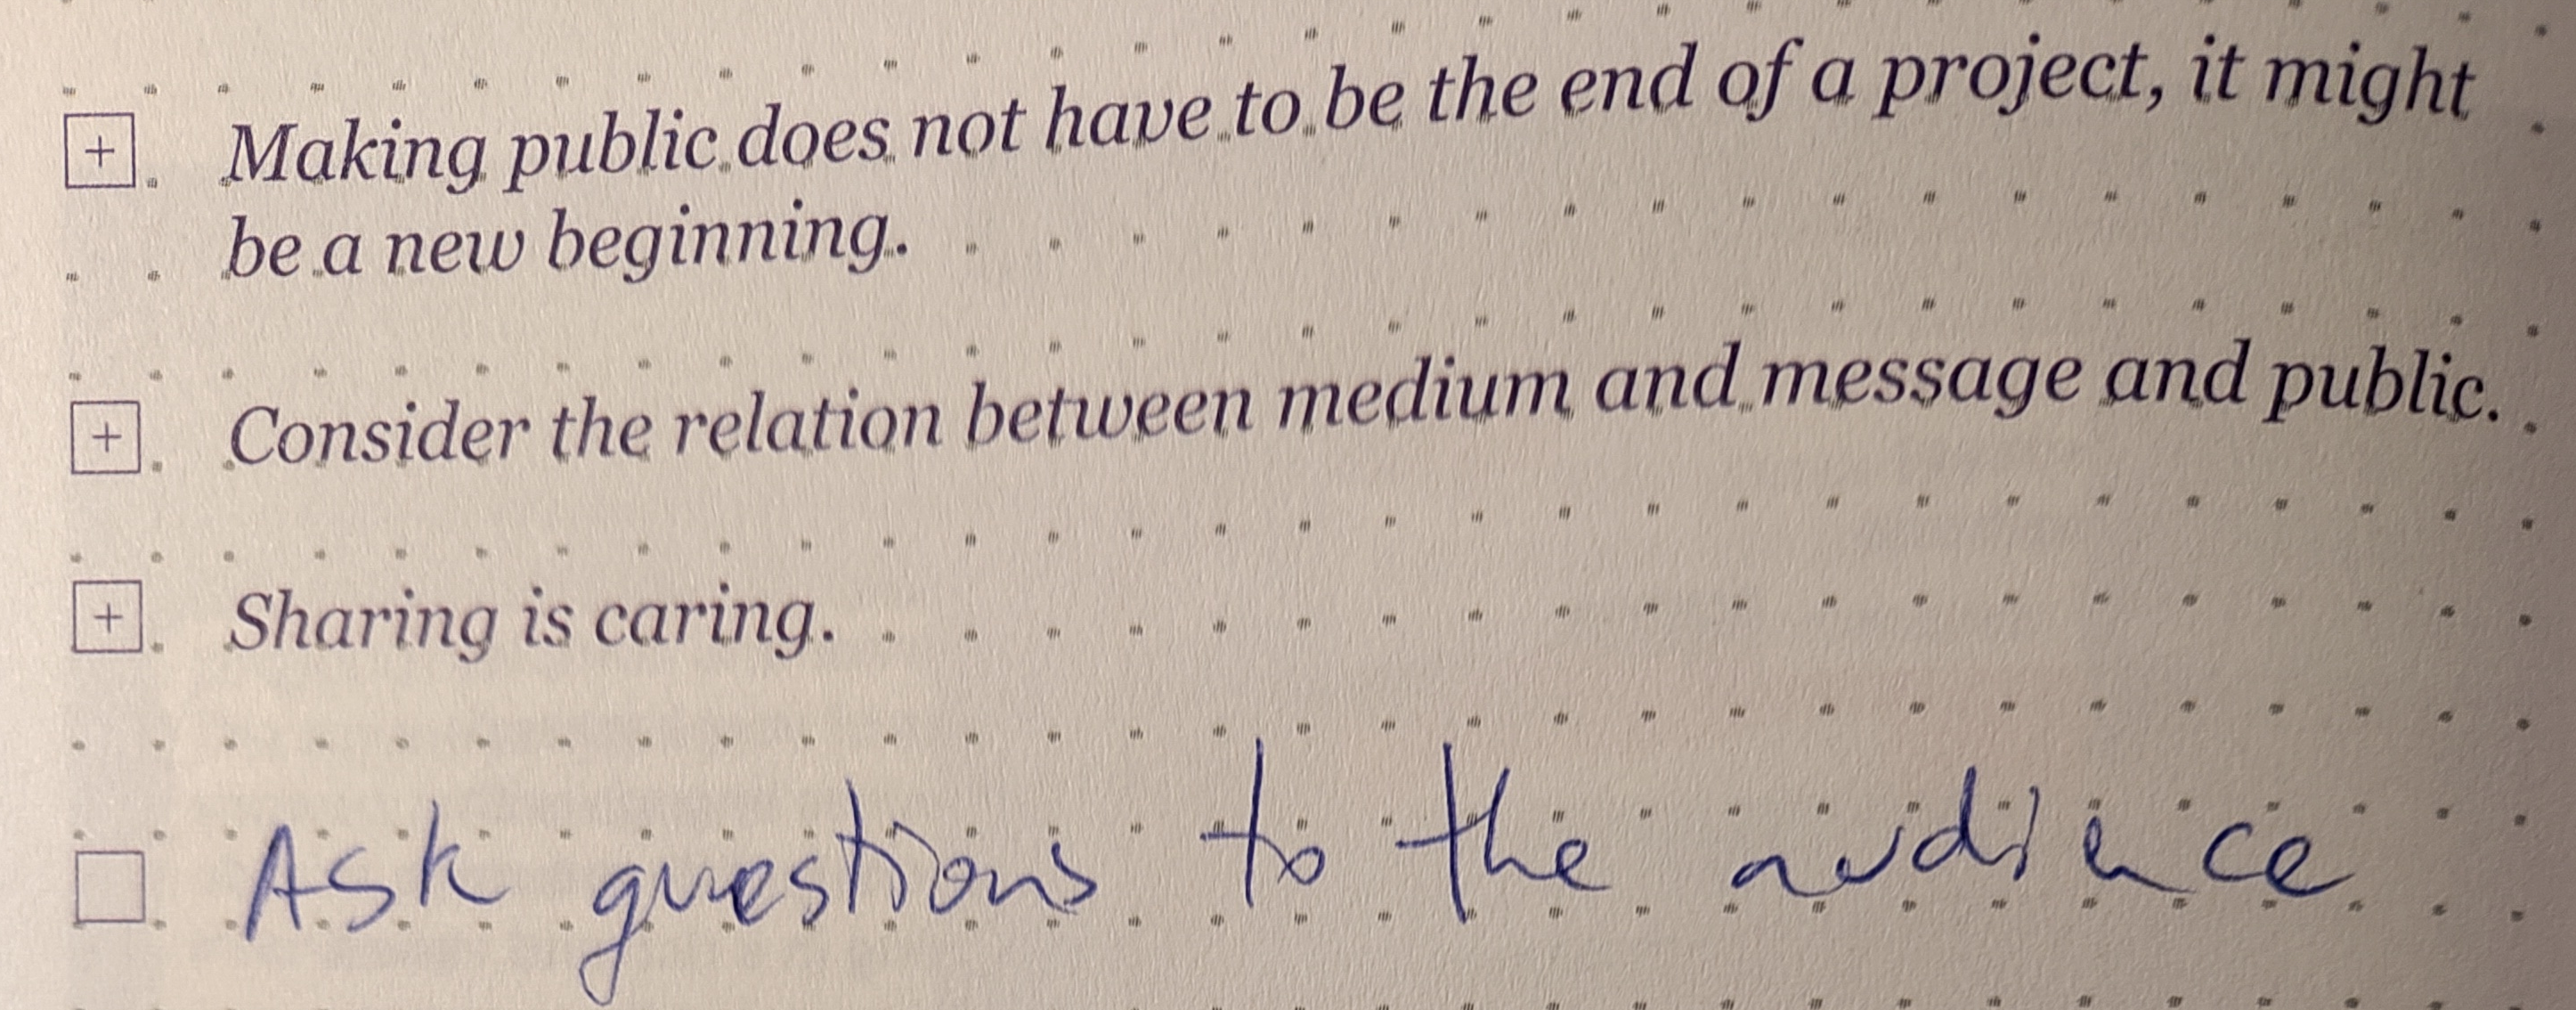 + Making public does not have to be the end of a project, it might
be a new beginning.
+ Consider the relation between medium and message and public.
+ Sharing is caring.
Ask questions to the audience